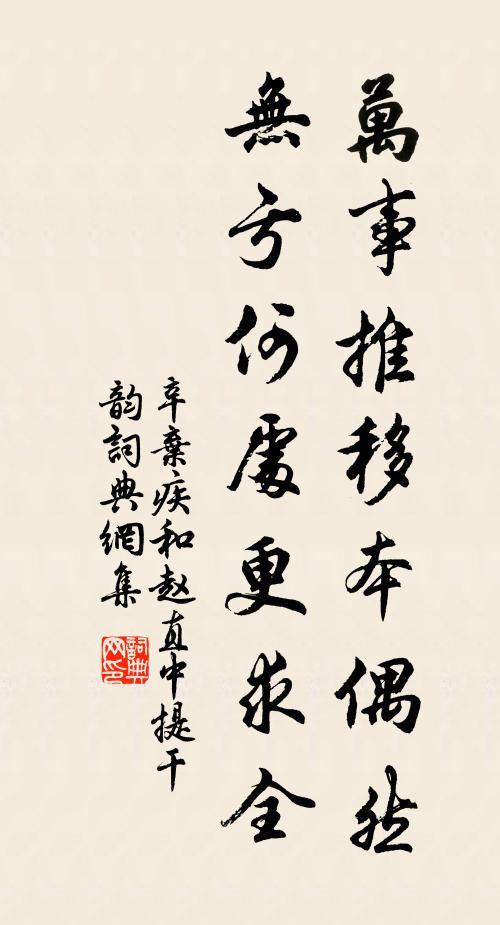 萬事推移本偶然
無亏何處更求全
辛棄疾和赵直中提干
韵詞典網集
詞典
网印